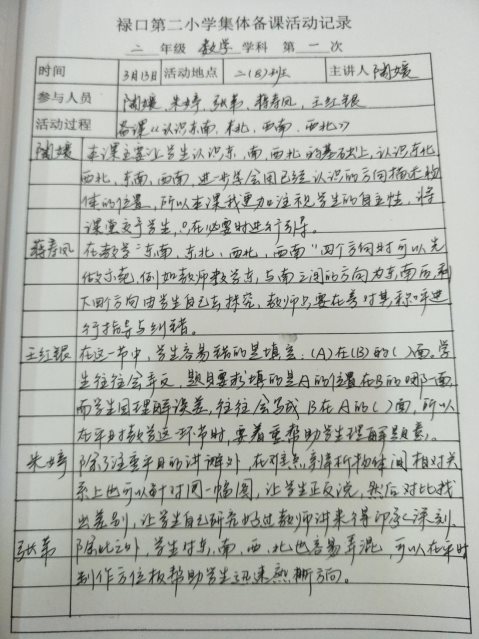 禄口第二小学集体备课活动记录
二 年级 数学 学科 第 一 次
时间 3月13日 活动地点 二(8)班 主讲人 陶嬡
参与人员 陶嬡 朱婷 张弟 蒋寿凤 王红银
活动过程 备课《认识东南、东北、西南、西北》
陶嬡 本课主要让学生认识东、南、西、北的基础上,认识东北
西北、东南、西南,进一步学会用已经认识的方向描述物
体的位置,所以本课我更加注视学生的自主性,将
课堂交予学生,只在必要时进行引导。
蒋寿凤 在教学"东南、东北、西北、西南"四个方向时可以先
做示范,例如教师教学东,与南之间的方向为东南后,剩
下四个方向由学生自己去探究,教师只要在旁对其称呼进
行指导与纠错。
王红银 在这一节中,学生容易错的是填空:(A)在(B)的( )面。学
生往往会弄反,题目要求填的是A的位置在B的哪一面,
而学生因理解误差,往往会写成B在A的( )面,所以
在平时教学这一环节时,要着重帮助学生理解题意。
朱婷 除了注重平日的讲解外,在对重点剖析物体间相对关
系上也可以针对同一幅图,让学生正反说,然后对比找
出差别,让学生自己研究好过教师讲来令其印象深刻。
张弟 除此之外,学生对东、南、西、北也容易弄混,可以在平时
制作方位板帮助学生迅速熟断方向。